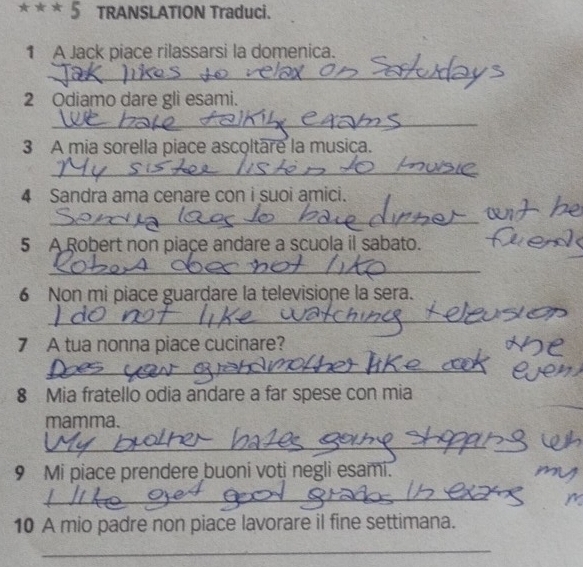 *** 5 TRANSLATION Traduci.
1 A Jack piace rilassarsi la domenica.
Jak likes to relax on Saturdays
2 Odiamo dare gli esami.
We hate talking exams
3 A mia sorella piace ascoltare la musica.
My sister listen to music
4 Sandra ama cenare con i suoi amici.
to have dinner wit he
friends
5 A Robert non piace andare a scuola il sabato.
Robert does not like
6 Non mi piace guardare la televisione la sera.
I do not like watching television
the
7 A tua nonna piace cucinare?
Does your grandmother like cook
even
8 Mia fratello odia andare a far spese con mia
mamma.
My brother hates going shopping
my
9 Mi piace prendere buoni voti negli esami.
I like get good grades in exams
10 A mio padre non piace lavorare il fine settimana.